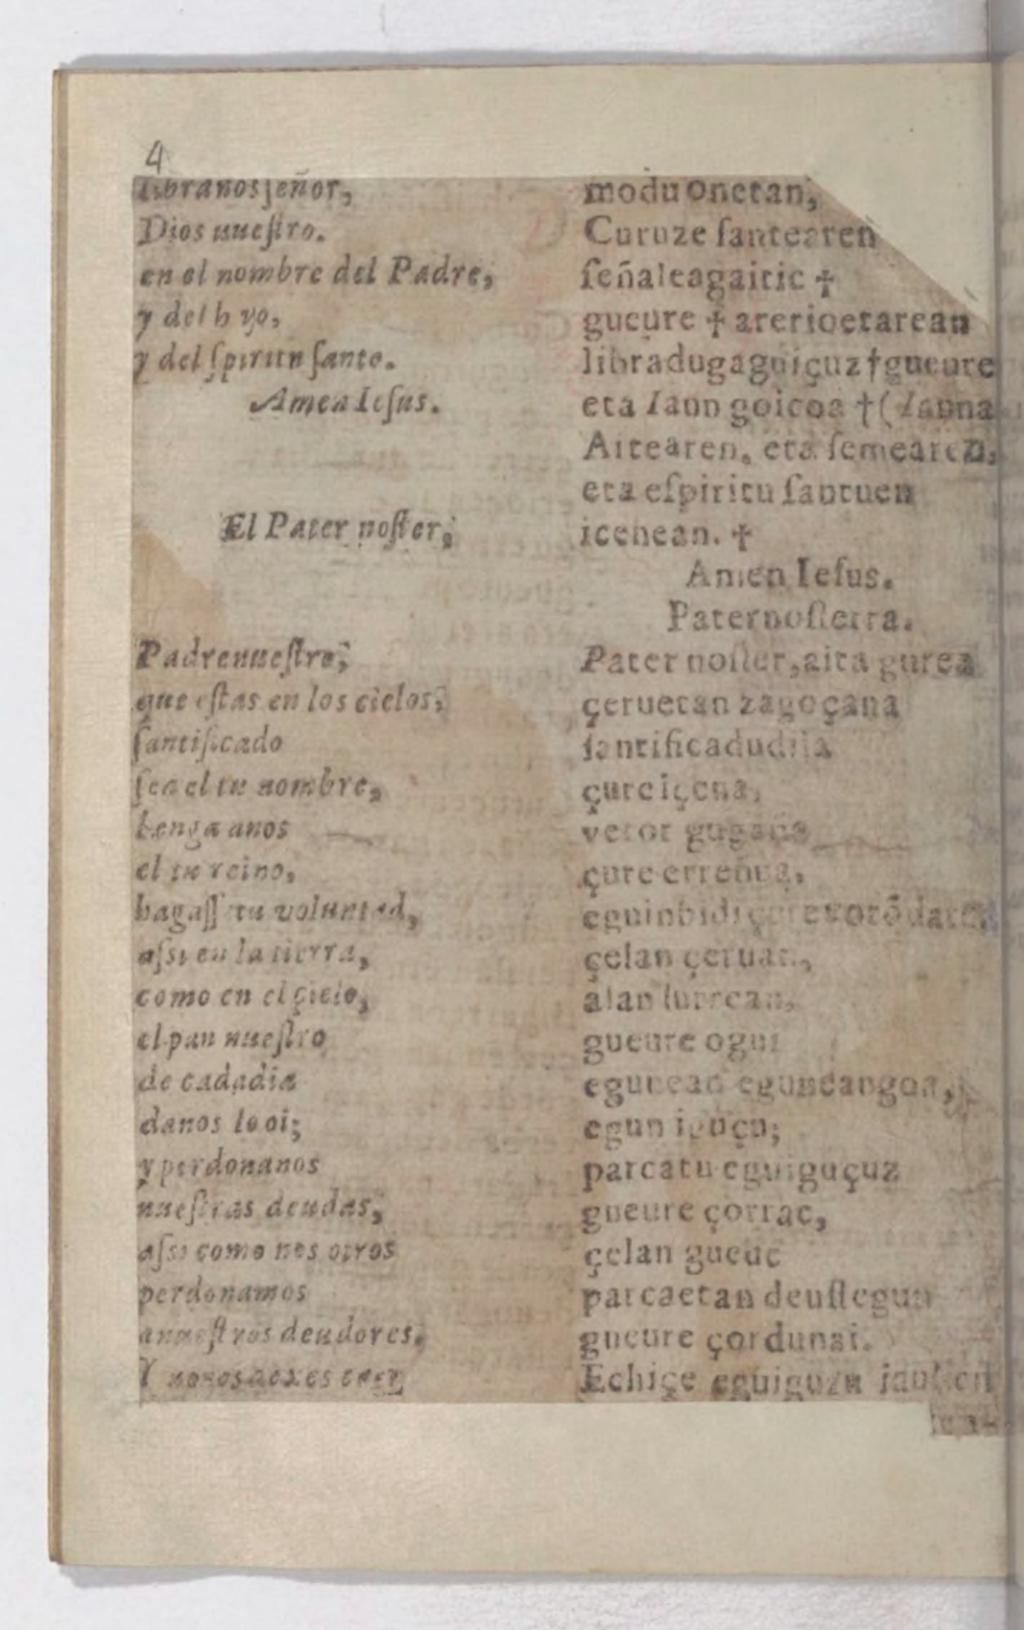 4
libranos señor,
Dios nuestro.
en el nombre del Padre,
y del h yo,
y del spiritu santo.
Amen Iesus.
El Pater noster,
Padre nuestro,
que estas en los cielos,
santificado
sea el tu nombre,
benga anos
el tu reino,
hagass tu voluntad,
assi en la tierra,
como en el çielo,
el pan nuestro
de cada dia
danos lo oi;
y perdonanos
nuestras deudas,
assi como nos otros
perdonamos
anuestros deudores.
Y
modu onetan,
Curuze santearen
señaleagaitic ☩
gueure ☩ arerioetarean
libradugaguiçuz † gueure
eta Iaun goicoa † ( Iauna
Aitearen, eta semearen,
eta espiritu santuen
icenean. ☩
Amen Iesus.
Paternosterra.
Pater noster, aita gurea
çeruetan zagoçana
santificadudila
çure içena,
vetor gugana
çure erreñua,
eguinbidi
çelan çeruan,
alan lurrean,
gueure ogui
egunean eguneangoa,
egun iguçu;
parcatu eguiguçuz
gueure çorrac,
çelan gueuc
parcaetan deustegun
gueure çordunai.
Echiçe eguiguzu